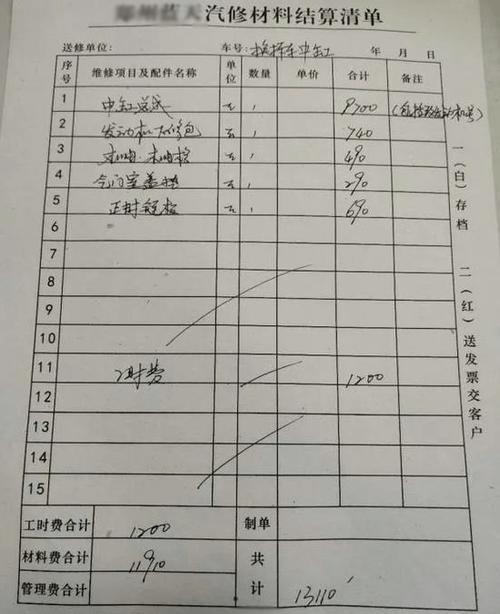 汽修材料结算清单
送修单位: 车号: 中缸 年 月 日
序号 维修项目及配件名称 单位 数量 单价 合计 备注
1 中缸总成 1 9700
2 发动机大修包 1 740
3 机油、机油格 1 490
4 气门室盖垫 1 290
5 正时 1 690
6
7
8
9
10
11 工时费 1200
12
13
14
15
工时费合计 1200 制单
材料费合计 11910 共计 13110
管理费合计
一(白)存档 二(红)送发票交客户